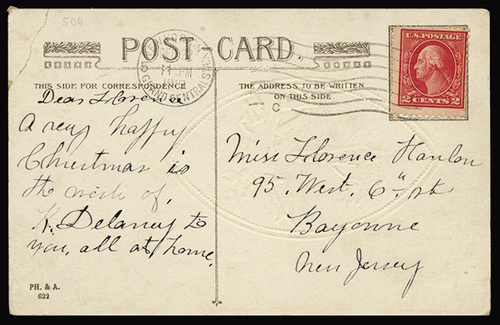 500
POST-CARD.
GRAND CENTRAL STA.
THIS SIDE FOR CORRESPONDENCE
THE ADDRESS TO BE WRITTEN
ON THIS SIDE
C
U.S. POSTAGE
2 CENTS 2
Dear Florence
A very happy
Christmas is
the wish of,
K. Delaney to
you, all at home.
Miss Florence Hanlon
95. West. 6th st
Bayonne
New Jersey
PH. & A.
022